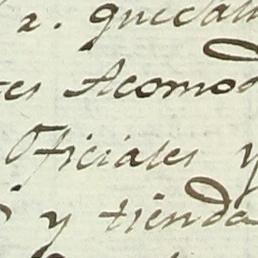 a. quedan
tes Acomod
Oficiales y
y tienda